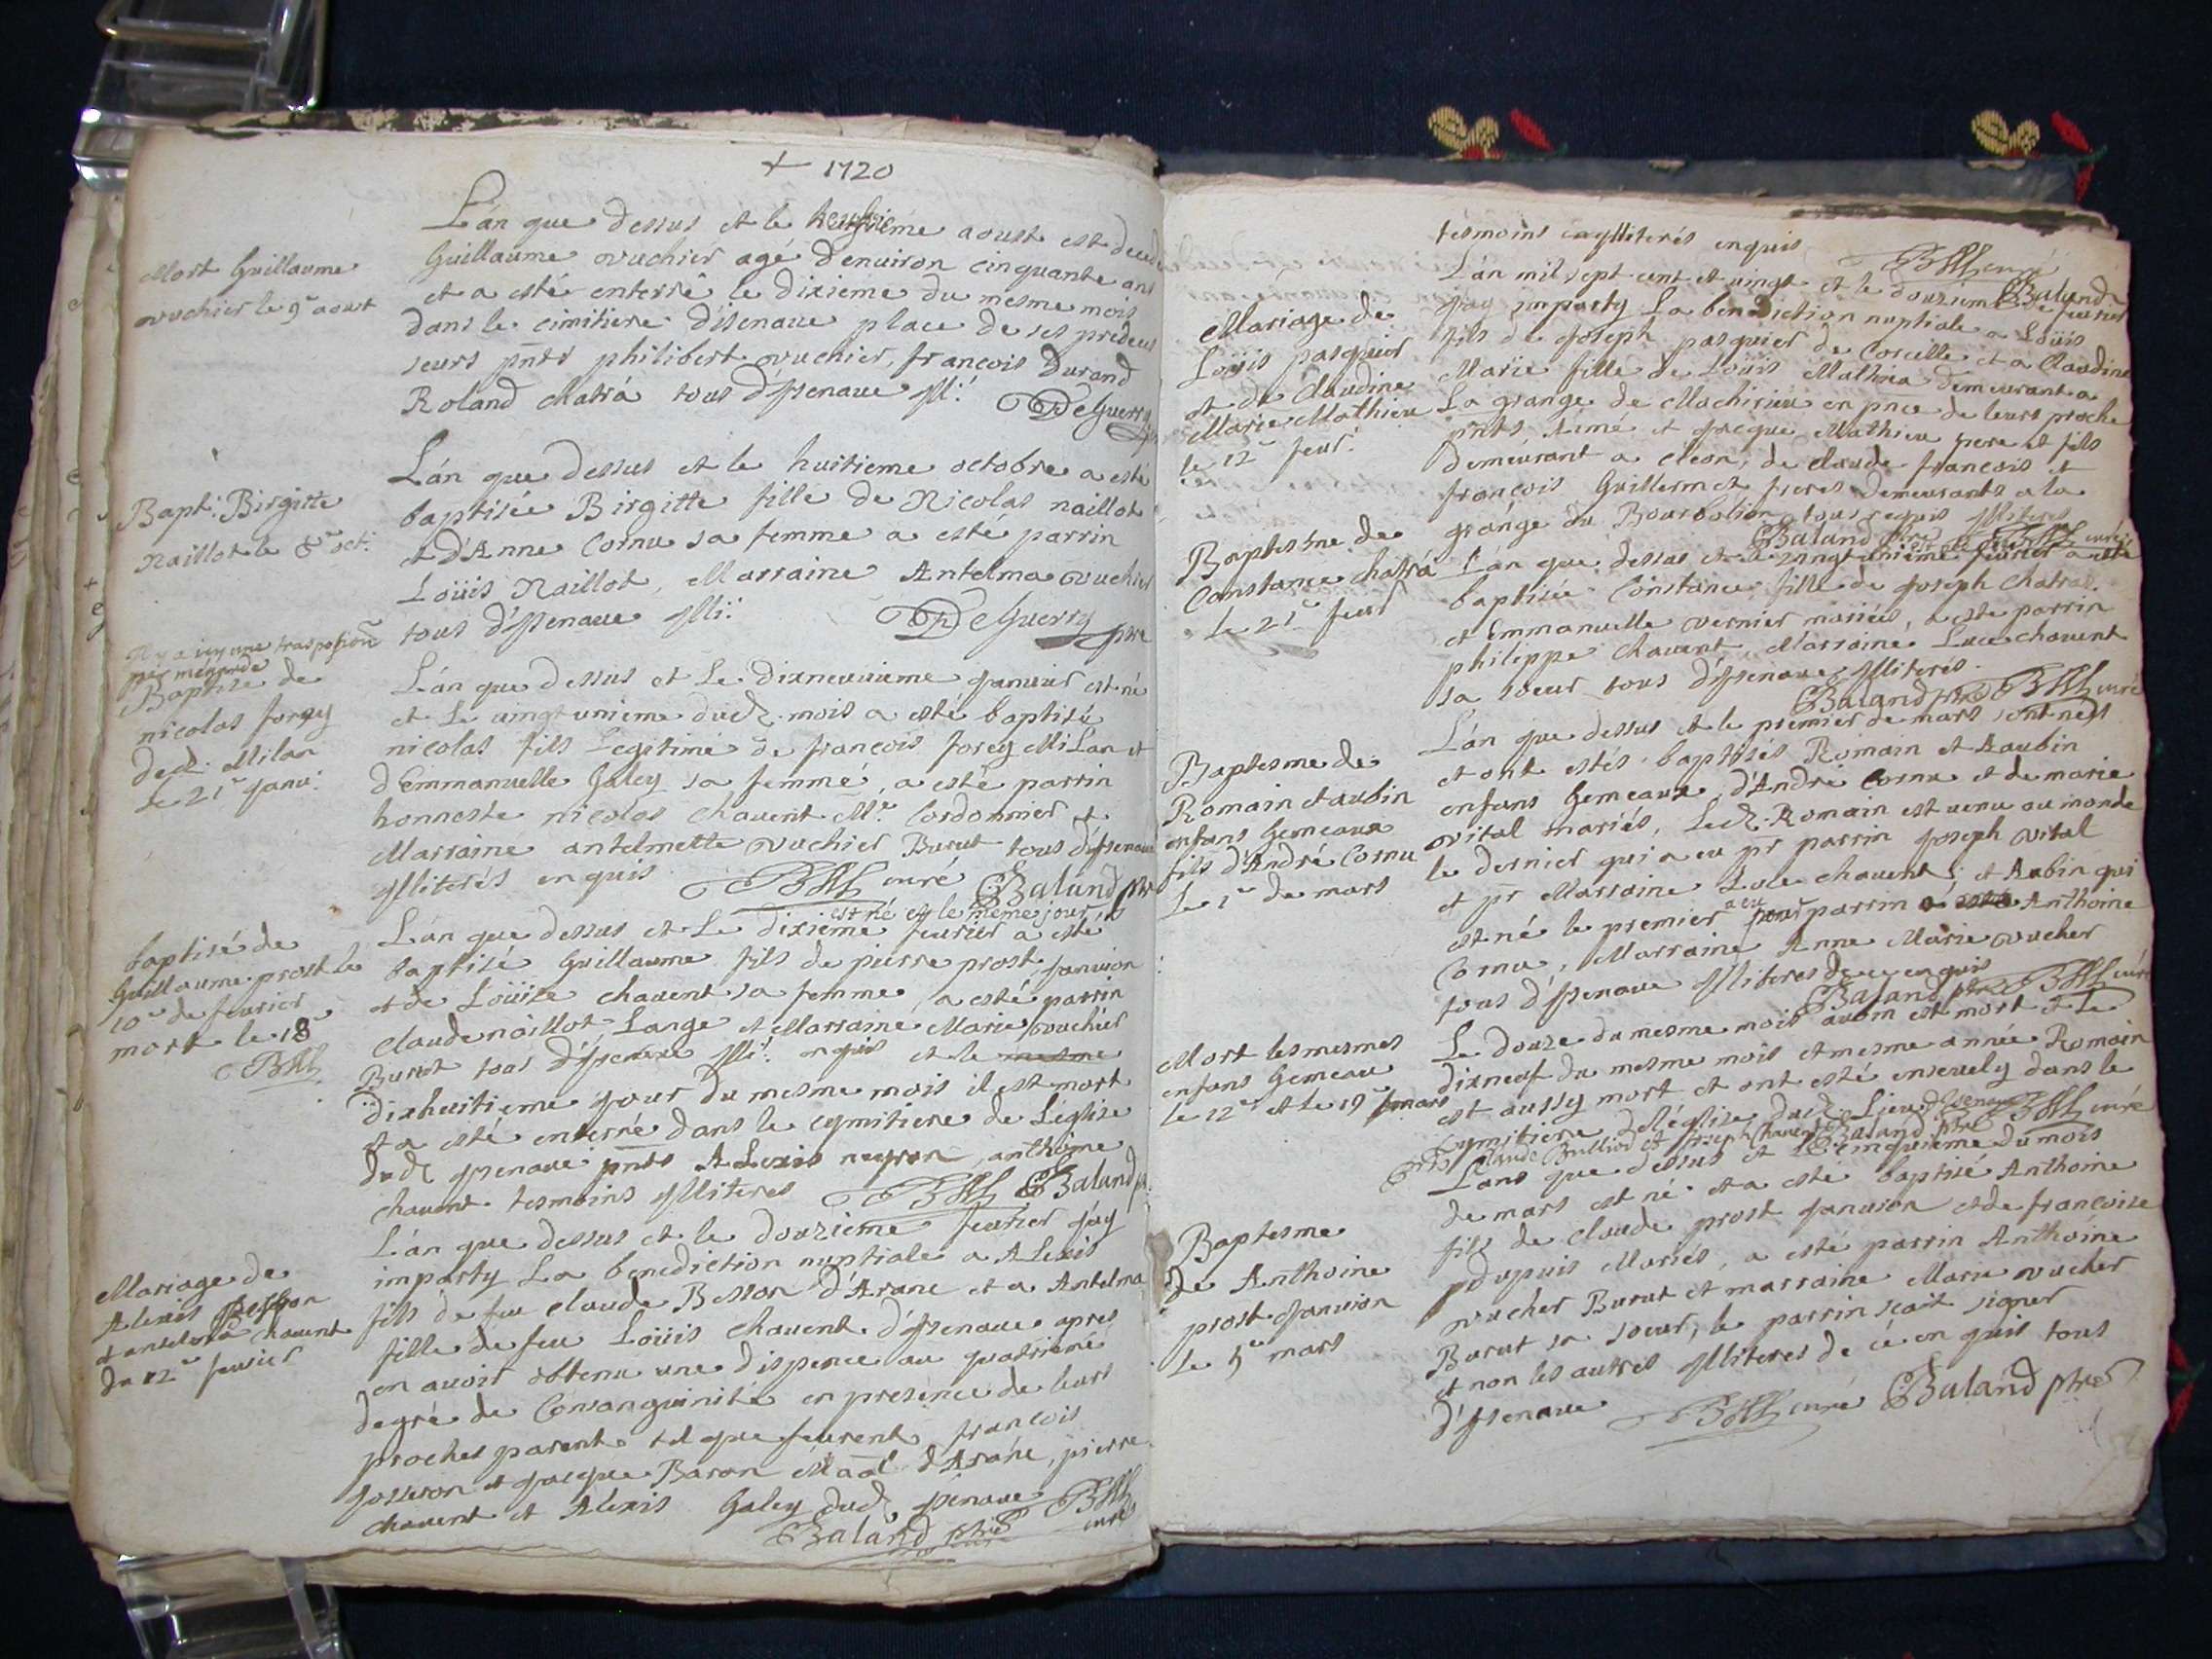 + 1720
Mort Guillaume
vuchier le 9e aoust
L'an que dessus et le neufvieme aoust est deced
Guillaume vuchier agé d'environ cinquante ans
et a esté enterré le dixieme du mesme mois
dans le cimitiere d'Isenave place de ses predeces
seurs pnts philibert vuchier, françois Durand
Roland Chatrá tous d'Isenave Illi:
DeGuerry
Bapt: Birgitte
Naillot le 8e oct:
L'an que dessus et le huitieme octobre a esté
baptisée Birgitte fille de Nicolas naillot
et d'Anne Cornu sa femme a esté parrin
Loüis Naillot, Marraine Antelma vuchier
tous d'Isenave Illi:
DeGuerry ptre
Il y a icy une trasposition
par megarde
Baptise de
nicolas forey
ded. Milan
le 21e janv:
L'an que dessus et Le dixneuvieme janvier est né
et Le vingt unieme dud. mois a esté baptisé
nicolas fils Legetime de françois forey Milan et
d'Emmanuelle Galey sa femme, a esté parrin
honneste nicolas Chavent Me. Cordonnier et
Marraine antelmette vuchier Burut tous d'Isenave
Illiterés enquis
curé Baland ptre
baptisé de
Guillaume prost le
10e de fevrier
mort le 18
est né et le meme jour
L'an que dessus et Le dixieme fevrier a esté
baptisé Guillaume fils de pierre prost janvion
et de Loüise chavent sa femme, a esté parrin
Claude naillot Lange et Marraine Marie vuchier
Burut tous d'Isenave Illi: enquis et le mesme
dixhuitieme jour du mesme mois il est mort
et a esté enterré dans le cymitiere de L'église
dud Isenave pnts ALexis neyron, anthoine
chavent tesmoins Illiteres
Baland
Mariage de
Alexis Besson
et antelma chavent
du 12e fevrier
L'an que dessus et le douzieme fevrier j'ay
imparty La benediction nuptiale a ALexis
fils de feu Claude Besson d'Aranc et a Antelma
fille de feu Loüis Chavent d'Isenave apres
en avoir obtenu une dispence au quatrieme
degré de Consanguinité en presence de leurs
proches parents tel que feurent françois
josseron et jacque Baron d'Arane, pierre
chavent et Alexis Galey dud. Isenave
Baland ptre curé
tesmoins Illiterés enquis
curé
Baland
Mariage de
Loüis pasquier
et de Claudine
Marie Mathieu
le 12e fevr:
L'an mil sept cent et vingt et le douzieme de fevrier
j'ay imparty La benediction nuptiale a Loüis
fils de joseph pasquier de Corcelle et a Claudine
Marie fille de Loüis Mathieu demeurant a
La grange de Machirieu en pnce de leurs proche
pnts, Aimé et jacque Mathieu pere et fils
demeurant a cleon, de claude françois et
françois Guillermet freres demeurants a la
grange du Bourbolion tous requis Illiteres
Baland curé
Baptesme de
Constance Chatrá
le 21e fevr
L'an que dessus et le vingt unieme fevrier a esté
baptisée Constance fille de joseph Chatrá
et Emmanuelle vernier mariés, a esté parrin
philippe Chavent Marraine Luce chavent
sa soeur tous d'Isenave Illiterés.
Baland ptre curé
Baptesme de
Romain et aubin
enfans Gemeaux
fils d'André Cornu
Le 1er de mars
L'an que dessus et le premier de mars sont nés
et ont estés baptisés Romain et Aaubin
enfans Gemeaux, d'André Cornu et de marie
vital mariés, Led. Romain est venu au monde
le dernier qui a eu pr parrin joseph vital
et pr Marraine Luce chavent; et Aubin qui
est né le premier a eu pour parrin a esté Anthoine
Cornu, Marraine Anne Marie vucher
tous d'Isenave Illiteres de ce enquis
Baland ptre curé
Mort les mesmes
enfans Gemeau
le 12e et le 19e mars
Le douze du mesme mois aubin est mort et Le
dixneuf du mesme mois et mesme année Romain
est aussy mort et ont esté ensevely dans le
Cymitiere de l'église dud. Lieu d'Isenave curé
pnts Claude Bulliod et joseph Chavent Baland ptre
Baptesme
de Anthoine
prost janvion
Le 5e mars
L'ans que dessus et Le cinquieme du mois
de mars est né et a esté baptisé Anthoine
fils de claude prost janvion et de françoise
dupuis Mariés, a esté parrin Anthoine
vucher Burut et marraine Marie vucher
Burut sa soeur, le parrin scait signer
et non les autres Illiteres de ce en quis tous
d'Isenave
curé Baland ptre